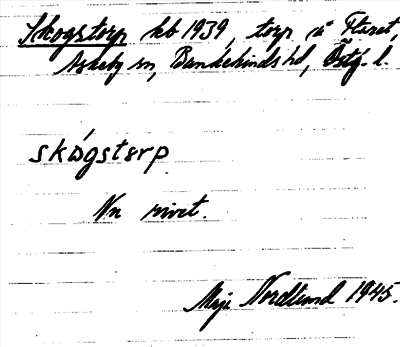 Skogstorp kb 1939, torp u Floret,
Askeby sn, Bankekinds hd, Östg. l.
skógstɘrp
Nu rivet.
Maja Nordlund 1945.